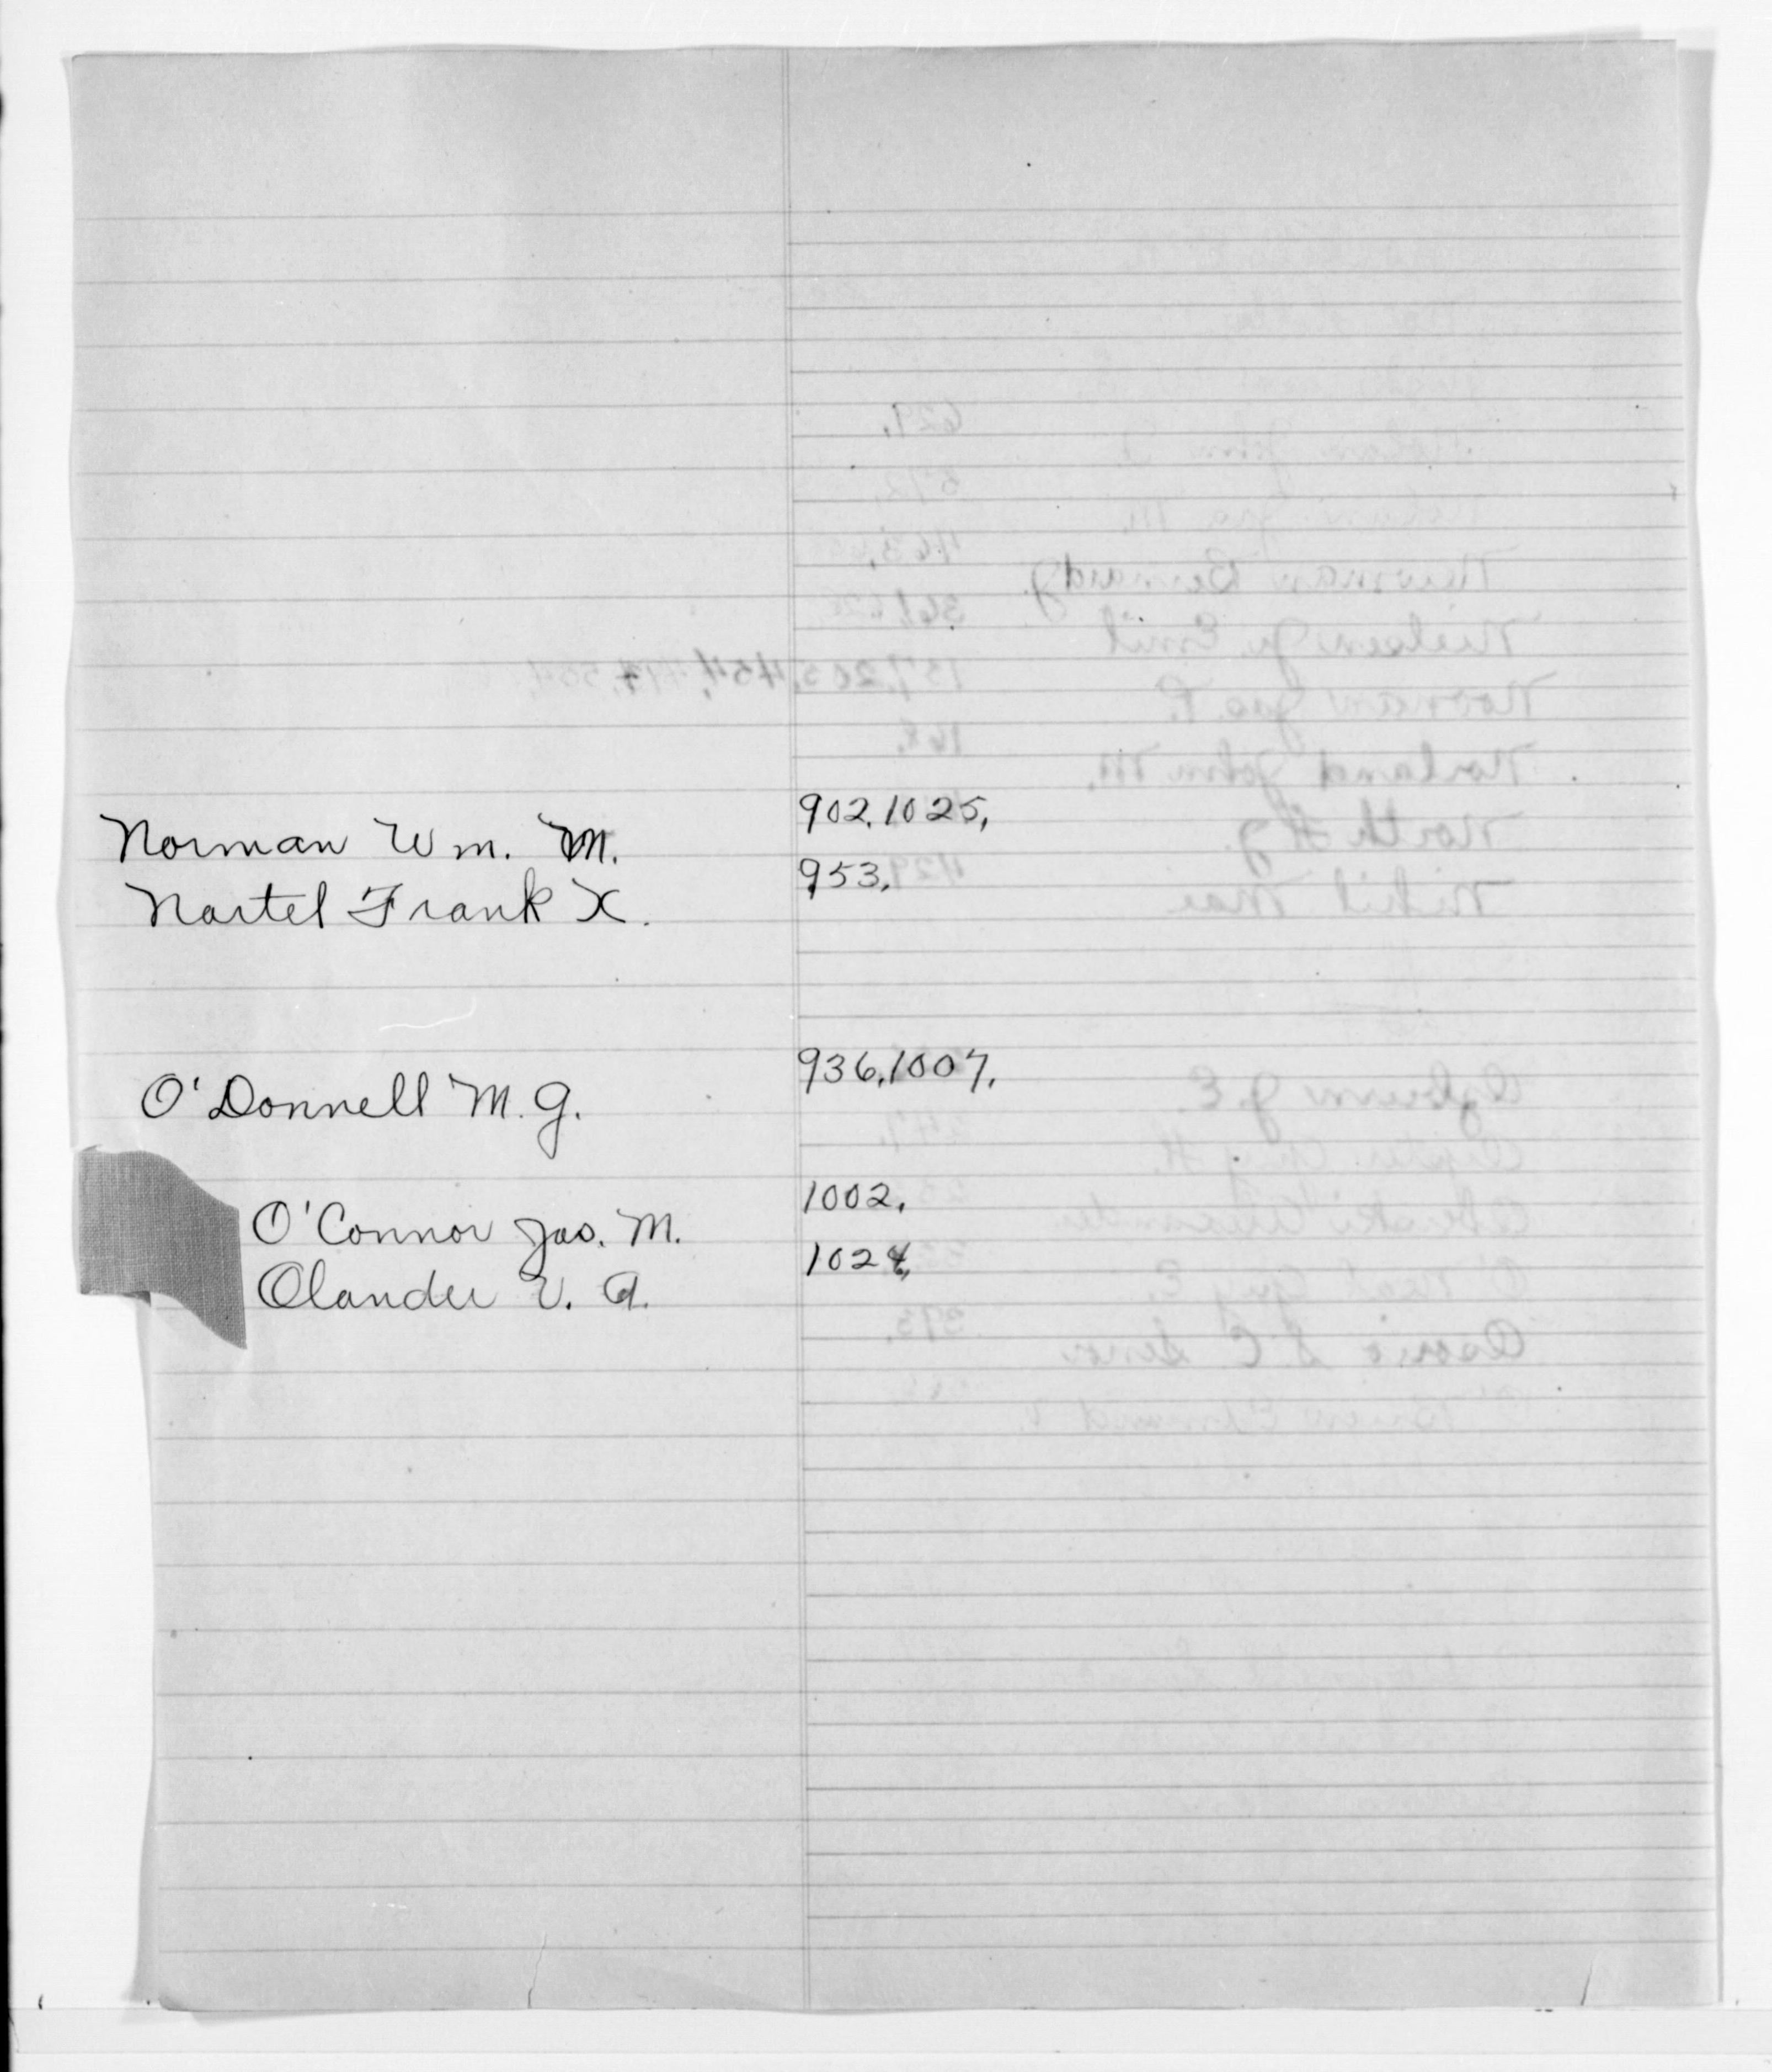 Norman Wm. M. 902, 1025,
Nartel Frank X. 953,
O'Donnell M. J. 936, 1007,
O'Connor Jas. M. 1002,
Olander V. A. 1024,